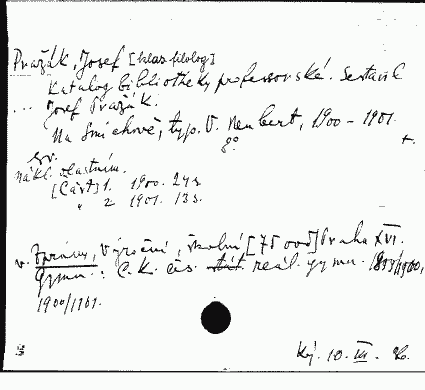 Pražák, Josef [klas. filolog]
Katalog bibliotheky professorské. Sestavil
... Josef Pražák.
Na Smíchově, typ. V. Neubert, 1900 – 1901.
8°
nákl. vlastním.
[Část] 1. 1900. 24 s.
" 2 1901. 13 s.
v. Zprávy, Výroční, školní [75 000] Praha XVI.
Gymn.: C. k. čes. stát. reál. gymn. 1899/1900,
1900/1901.
Ký. 10. XI.